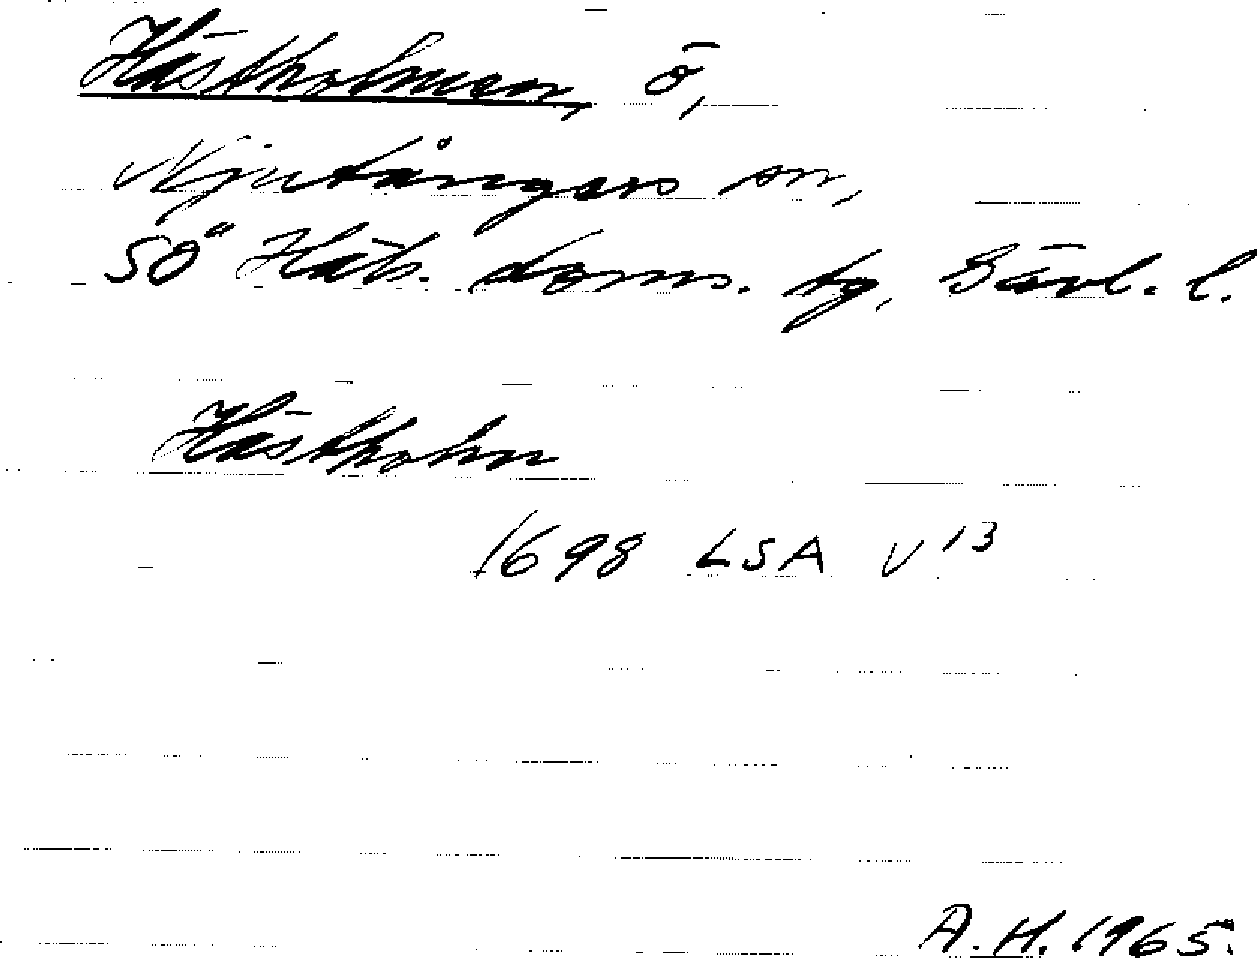 Hästholmen, ö,
Njutångers sn,
SÖ Häls. doms. tg, Gävl. l.
Hästholm
1698 LSA V 13
A. H. 1965.